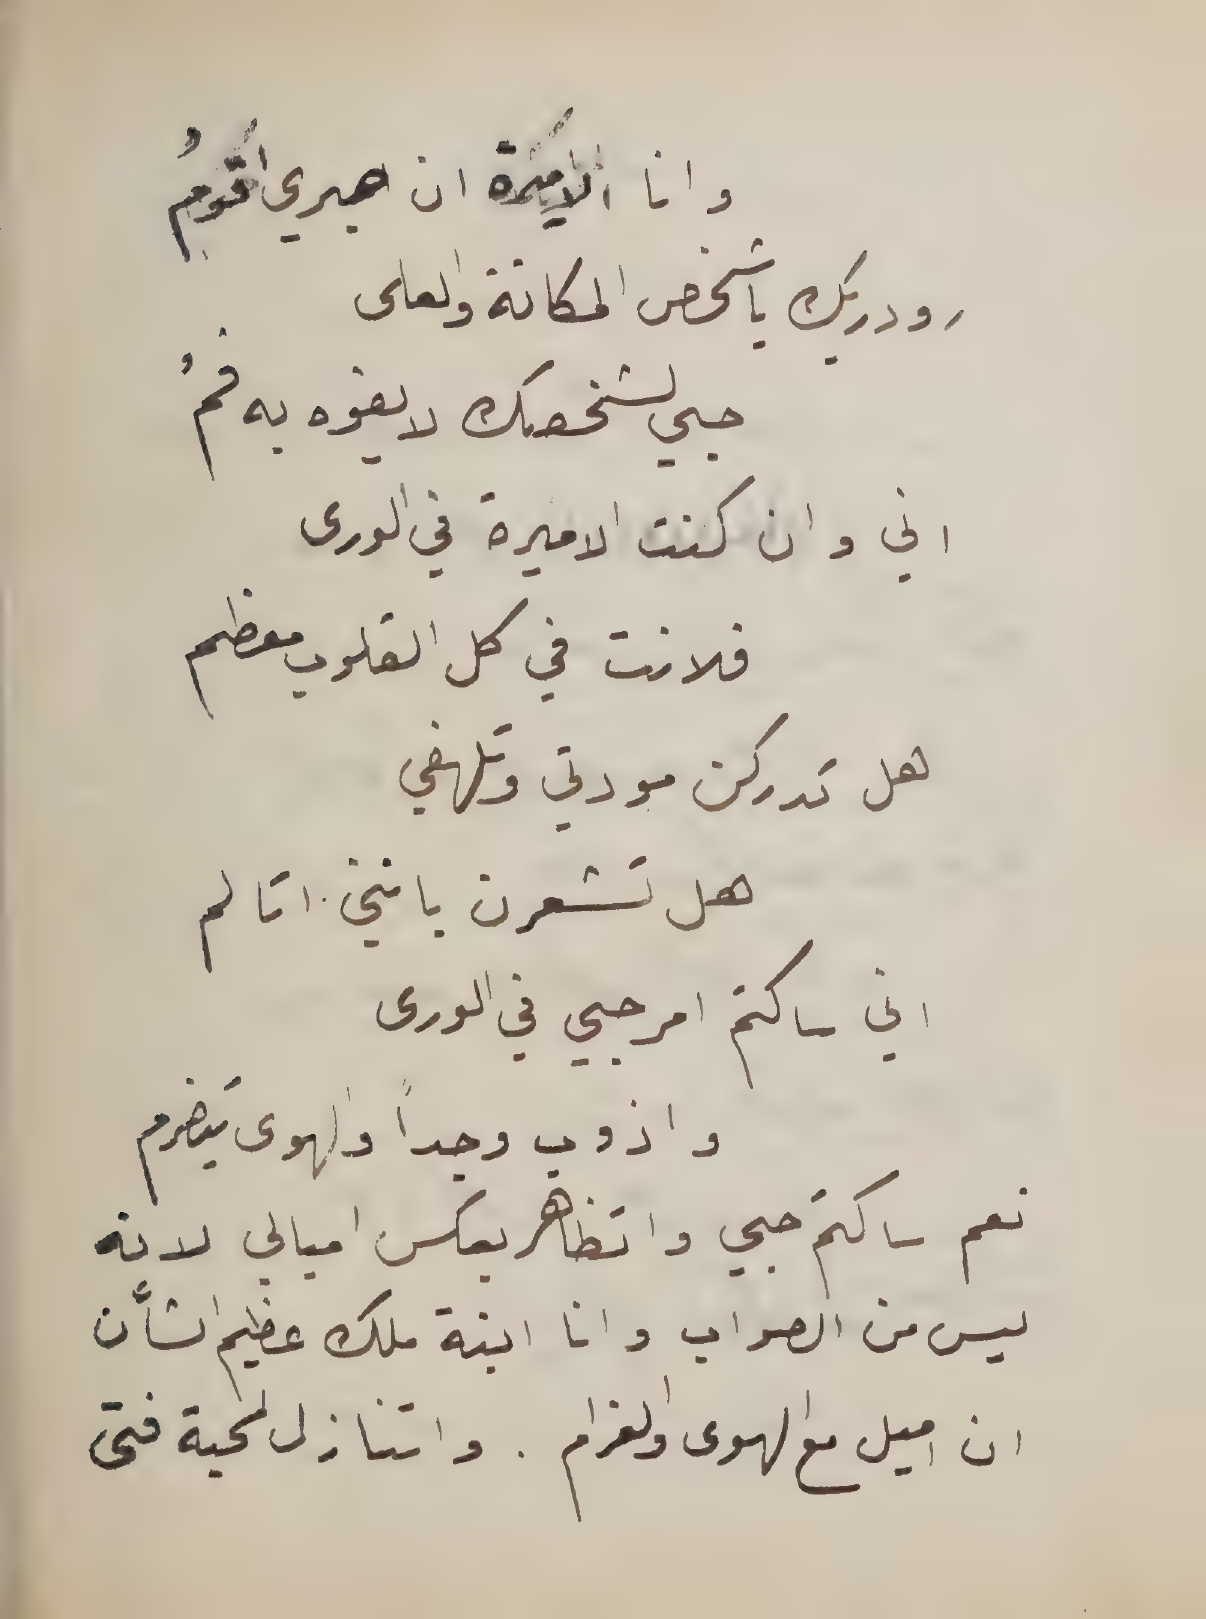 وانا الاميرة ان هجري اقومُ
رودريك يا شخص المكانة والعلى
حبي لشخصك لا يفوه به فمُ
اني وان كنت الاميرة في الورى
فلانت في كل القلوب معظم
هل تدركن مودتي وتلهفي
هل تشعرن بانني اتالم
اني ساكتم امر حبي في الورى
واذوب وجداً والهوى يتضرم
نعم ساكتم حبي واتظاهر بعكس اميالي لانه
ليس من الصواب وانا ابنة ملك عظيم الشأن
ان اميل مع الهوى والغرام . واتنازل لمحبة فتى